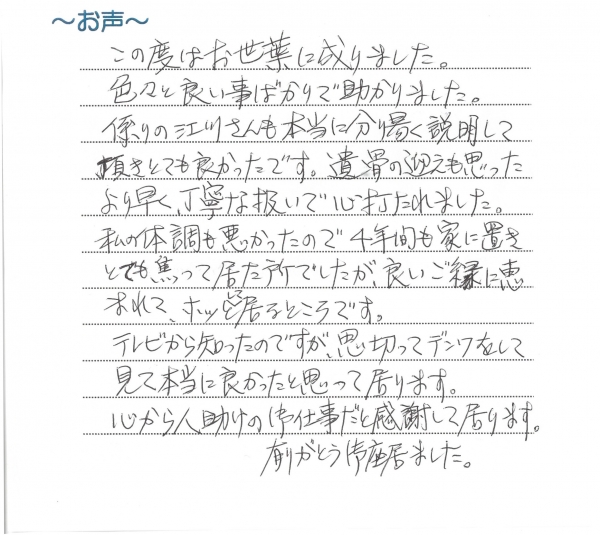 ～お声～
この度はお世葉に成りました。
色々と良い事ばかりで助かりました。
係りの江川さんも本当に分り易く説明して
頂きとても良かったです。遺骨の迎えも思った
より早く、丁寧な扱いで心打たれました。
私の体調も悪かったので4年間も家に置き
とても焦って居た所でしたが、良いご縁に恵
まれて、ホッと居るところです。
テレビから知ったのですが、思い切ってデンワをして
見て本当に良かったと思って居ります。
心から人助けの御仕事だと感謝して居ります。
有りがとう御座居ました。